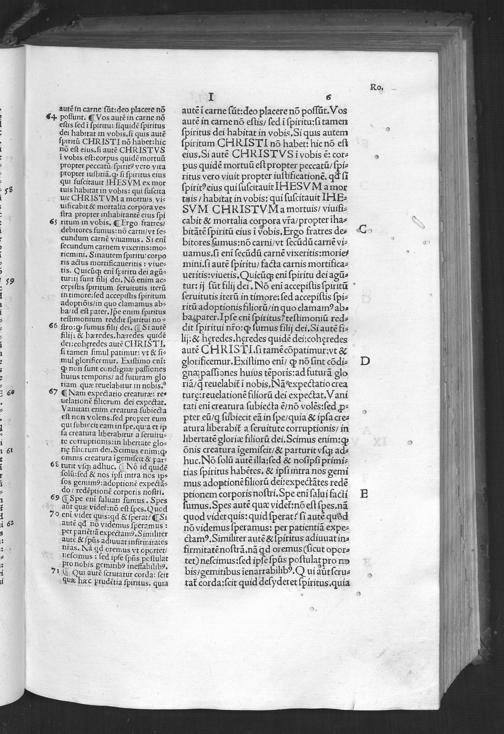 Ro.
I
6
autē in carne sūt: deo placere nō
64 possunt. ¶ Vos autē in carne nō
estis sed ī spiritu: siquidē spiritus
dei habitat in vobis. si quis autē
spiritū CHRISTI nō habet: hic
nō est eius. si autē CHRISTVS
ī vobis est: corpus quidē mortuū
propter peccatū: spirit⁹ vero vita
propter iustitiā. q̄ si spiritus eius
qui suscitauit IHESVM ex mor
tuis habitat in vobis: qui suscita
uit CHRISTVM a mortuis, vi
uificabit & mortalia corpora ve
stra propter inhabitantē eius spi
65 ritum in vobis. ¶ Ergo fratres/
debitores sumus: nō carni/vt se/
cundum carnē viuamus. Si enī
secundum carnem vixeritis: mo
riemini. Si autem spiritu: corpo
ris actus mortificaueritis: viue
tis. Quicūq; eni spiritu dei agū
tur: ii sunt filij dei. Nō enim ac
cepistis spiritum seruitutis iterū
in timore: sed accepistis spiritum
adoptiōis in quo clamamus ab
ba id est pater. Ipse enim spiritus
testimonium reddit spiritui no
66 stro: q̄ sumus filij dei. ¶ Si autē
filij: & hæredes. hæredes quidē
dei: cohæredes autē CHRISTI.
si tamen simul patimur: vt & si/
mul glorificemur. Existimo enī
q̄ non sunt condignæ passiones
huius temporis: ad futuram glo
riam quæ reuelabitur in nobis.
67 ¶ Nam expectatio creaturæ: re
uelationē filiorum dei expectat.
Vanitati enim creatura subiecta
est non volens. sed propter eum
qui subiecit eam in spe. quia & ip
sa creatura liberabitur a seruitu
te corruptionis: in libertatē glo
riæ filiorum dei. Scimus enim: q̄
omnis creatura igemiscit/& par
68 turit vsq; adhuc. ¶ Nō id quidē
solū: sed & nos ipsi intra nos ip
sos gemim⁹: adoptionē expectā
do/redēptionē corporis nostri.
69 ¶ Spe eni saluati sumus. Spes
aūt quæ videt: nō est spes. Quod
70 enī videt quis: qd & sperat? ¶ Si
autē qd nō videmus speramus:
per patiētiā expectam⁹. Similiter
autē & spūs adiuuat infirmitatē
nīam. Nā qd oremus vt oportet/
nescimus: sed ipse spūs postulat
pro nobis gemitib⁹ ineffabilib⁹.
71 ¶ Qui autē scrutatur corda: scit
quid hac prudētia spiritus. quia
autē ī carne sūt: deo placere nō possūt. Vos
autē in carne nō estis/ sed ī spiritu: si tamen
spiritus dei habitat in vobis. Si quis autem
spiritum CHRISTI nō habet: hic nō est
eius. Si autē CHRISTVS ī vobis ē: cor/
pus quidē mortuū est propter peccatū/spi/
ritus vero viuit propter iustificationē. qd si
spirit⁹ eius qui suscitauit IHESVM a mor
tuis/habitat in vobis: qui suscitauit IHE/
SVM CHRISTVM a mortuis/viuifi/
cabit & mortalia corpora vr̄a/propter iha/
bitātē spiritū eius ī vobis. Ergo fratres de/
C
bitores sumus: nō carni/vt secūdū carnē vi/
uamus. si enī secūdū carnē vixeritis: morie/
mini. si autē spiritu/ facta carnis mortifica/
ueritis: viuetis. Quicūq; eni spiritu dei agū/
tur: ij sūt filij dei. Nō enī accepistis spiritū
seruitutis iterū in timore: sed accepistis spi/
ritū adoptionis filiorū/in quo clamam⁹ ab
ba/pater. Ipse enī spiritus/testimoniū red/
dit spiritui nr̄o: q̄ sumus filij dei. Si autē fi/
lij: & hęredes. hęredes quidē dei: cohęredes
autē CHRISTI. si tamē cōpatimur: vt &
glorificemur. Existimo eni/ q̄ nō sunt cōdi/
D
gnæ passiones huius tēporis: ad futurā glo
riā/ q̄ reuelabit ī nobis. Nā expectatio crea
turę: reuelationē filiorū dei expectat. Vani
tati enī creatura subiecta ē/nō volēs: sed p/
pter eū/q subiecit eā in spe/quia & ipsa cre/
atura liberabit a seruitute corruptionis/in
libertatē gloriæ filiorū dei. Scimus enim: q̄
ōnis creatura igemiscit/& parturit vsq; ad/
huc. Nō solū autē illa: sed & nosipsi primi/
tias spiritus habētes, & ipsi intra nos gemi
mus adoptionē filiorū dei: expectātes redē
ptionem corporis nostri. Spe enī salui facti
E
sumus. Spes autē quæ videt: nō est spes. nā
quod videt quis: quid sperat? si autē quod
nō videmus speramus: per patientiā expe/
ctam⁹. Similiter autē & spiritus adiuuat in/
firmitatē nostrā. nā qd oremus (sicut opor/
tet) nescimus: sed ipse spūs postulat pro no
bis/gemitibus ienarrabilib⁹. Qui aūt scru/
tat corda: scit quid desyderet spiritus. quia
58
59
60
61
62